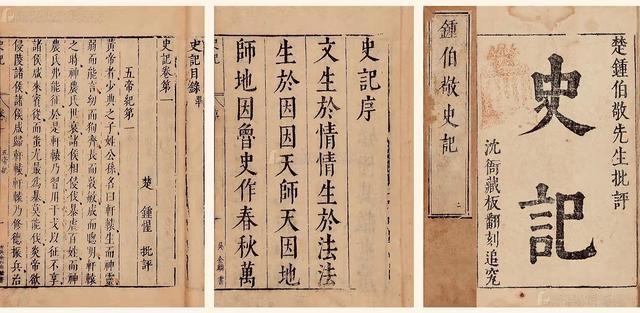 楚鍾伯敬先生批評
史記
沈衙藏板翻刻追究
鍾伯敬史記
史記序
文生於情情生於法法
生於因因天師天因地
師地因魯史作春秋萬
史記目錄畢
史記卷第一
五帝紀第一
楚 鍾惺 批評
黃帝者少典之子姓公孫名曰軒轅生而神靈
弱而能言幼而徇齊長而敦敏成而聰明軒轅
之時神農氏世衰諸侯相侵伐暴虐百姓而神
農氏弗能征於是軒轅乃習用干戈以征不享
諸侯咸來賓從而蚩尤最為暴莫能伐炎帝欲
侵陵諸侯諸侯咸歸軒轅軒轅乃修德振兵治